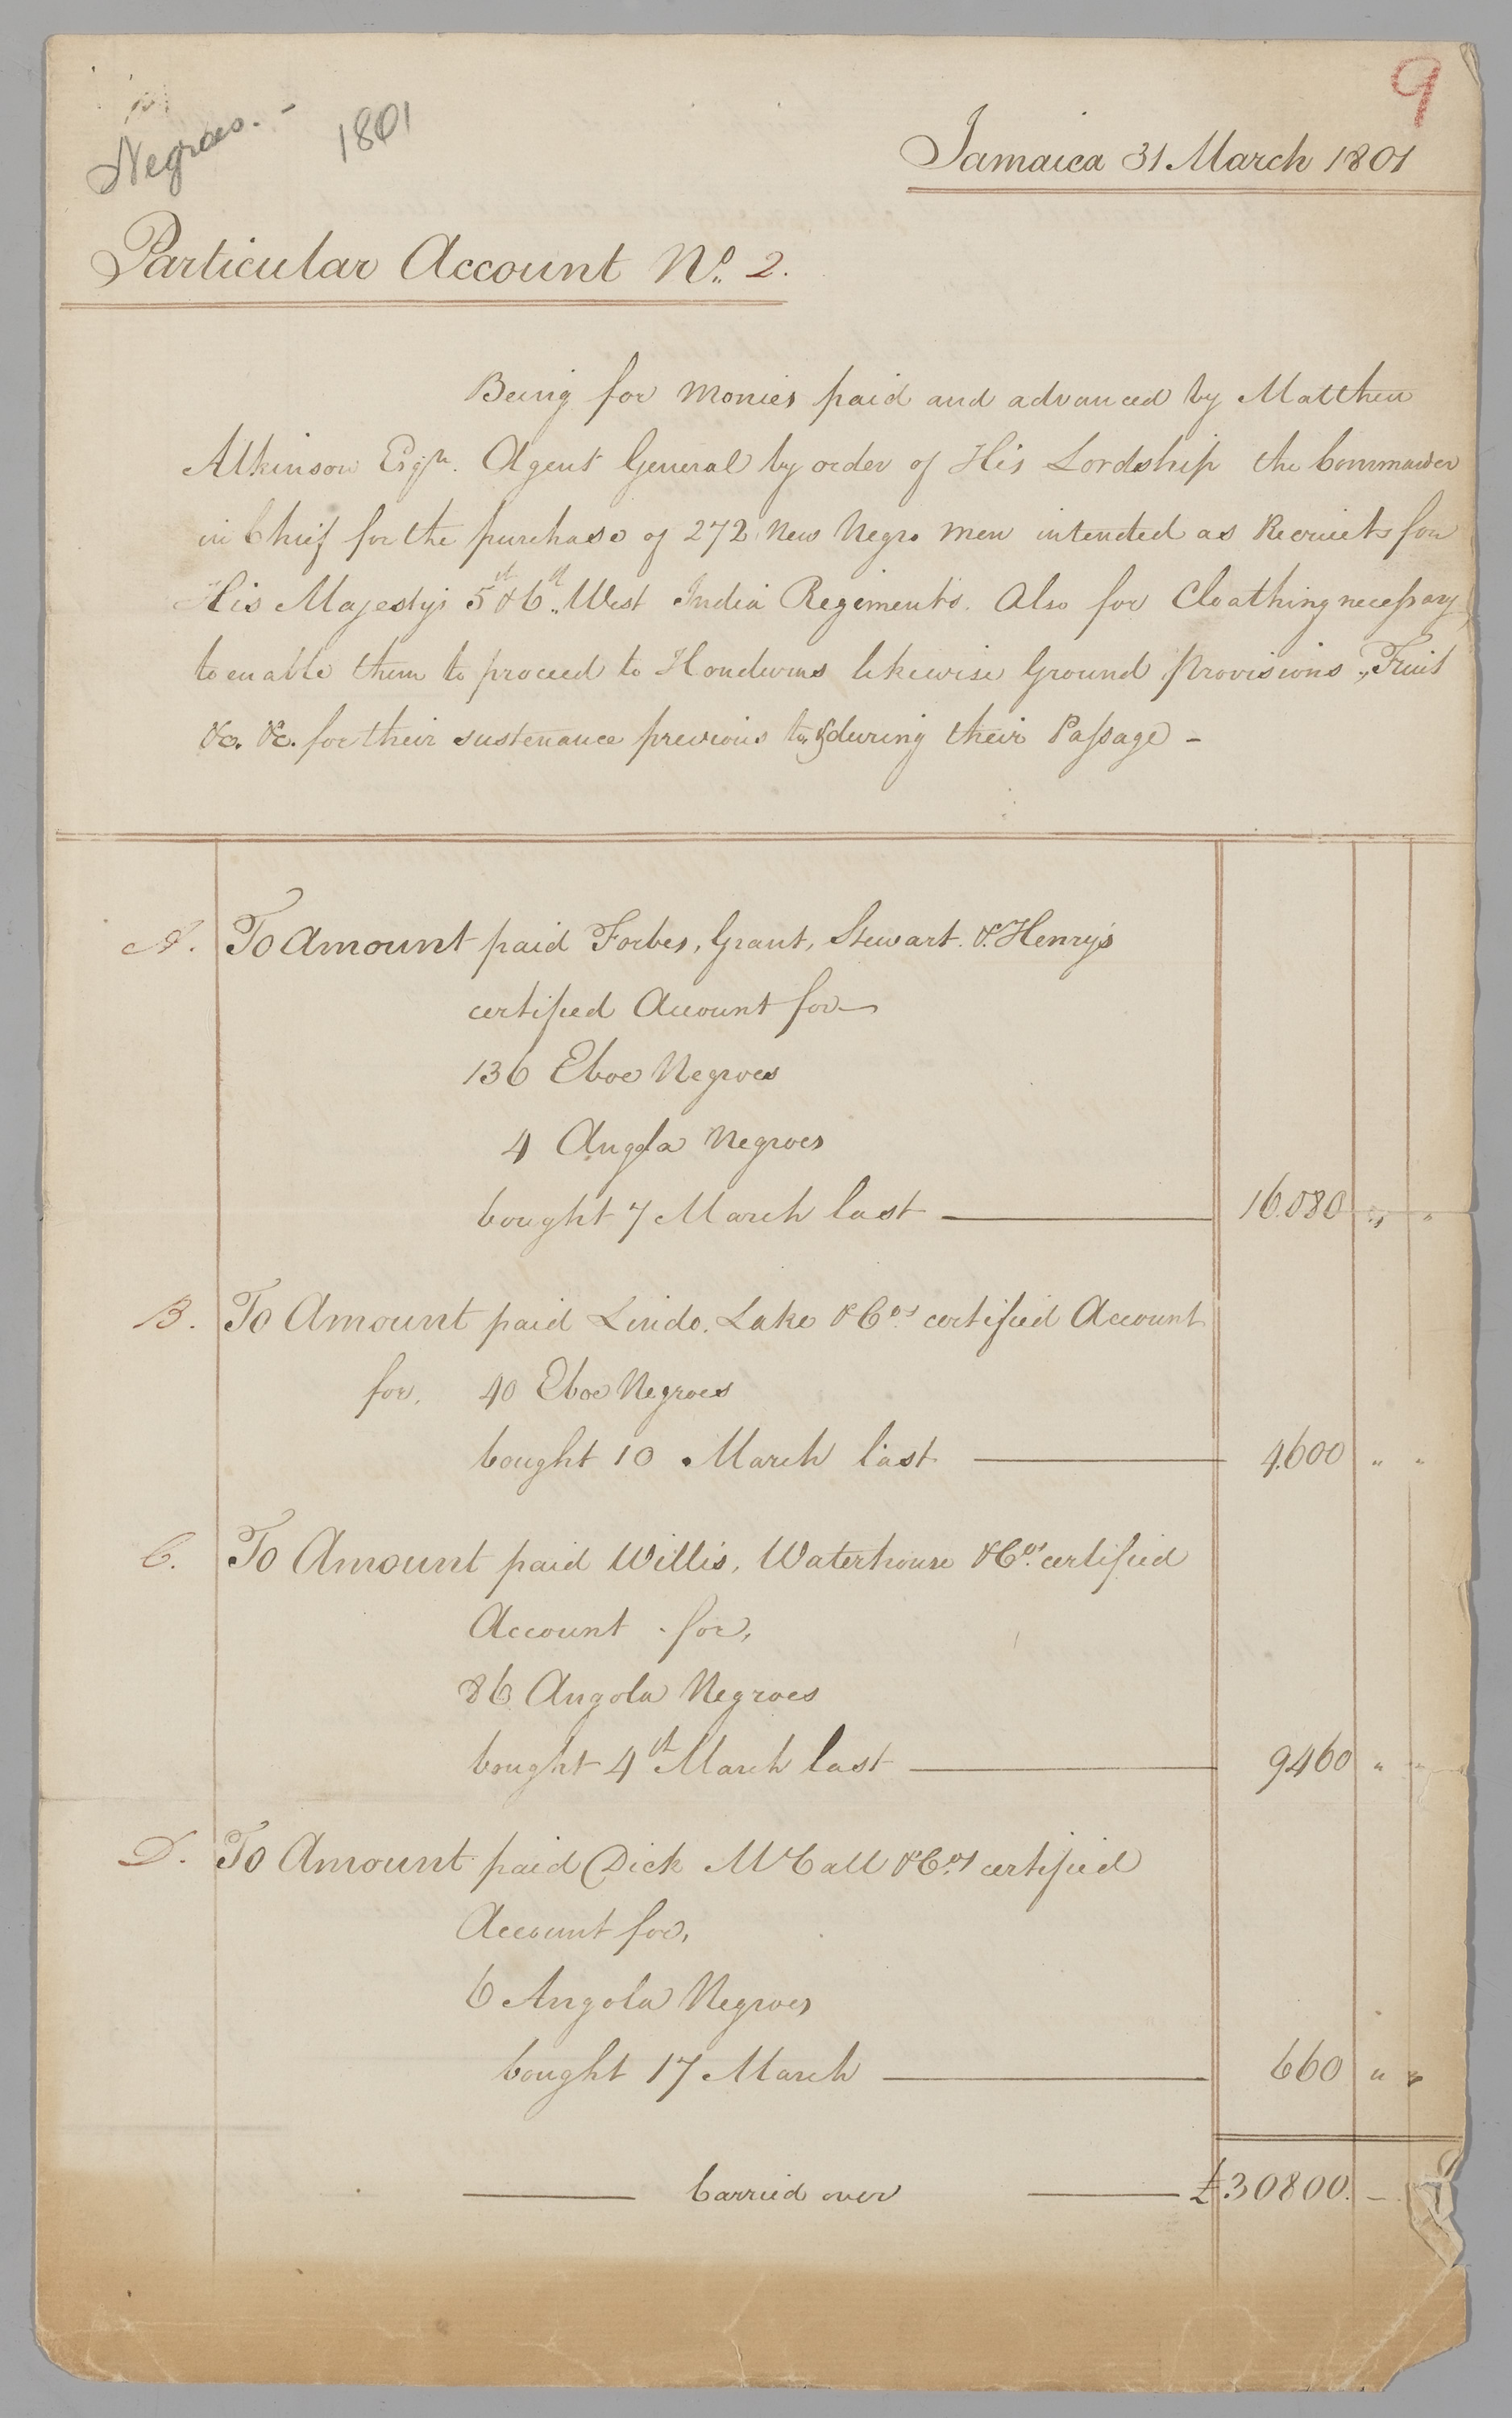 9
Negroes. -
1801
Jamaica 31 March 1801
Particular Account No. 2.
Being for Monies paid and advanced by Matthew
Atkinson Esqr. Agent General by order of His Lordship the Commander
in Chief for the purchase of 272 New Negro Men intended as Recruits for
His Majestys 5th & 6th West India Regiments. Also for Cloathing necessary
to enable them to proceed to Honduras likewise Ground Provisions, Fruit
&c. &c. for their sustenance previous to, & during their Passage -
A. To Amount paid Forbes, Grant, Stewart. & Henry's
certified Account for
136 Eboe Negroes
4 Angola Negroes
bought 7 March last 16.080 " "
B. To Amount paid Lindo. Lake & Cos. certified Account
for, 40 Eboe Negroes
bought 10 March last 4.600 " "
C. To Amount paid Willis, Waterhouse & Cos. certified
Account for,
86 Angola Negroes
bought 4th March last 9460 " "
D. To Amount paid Dick McCall & Cos. certified
Account for,
6 Angola Negroes
bought 17 March 660 " "
Carried over £.30800. –